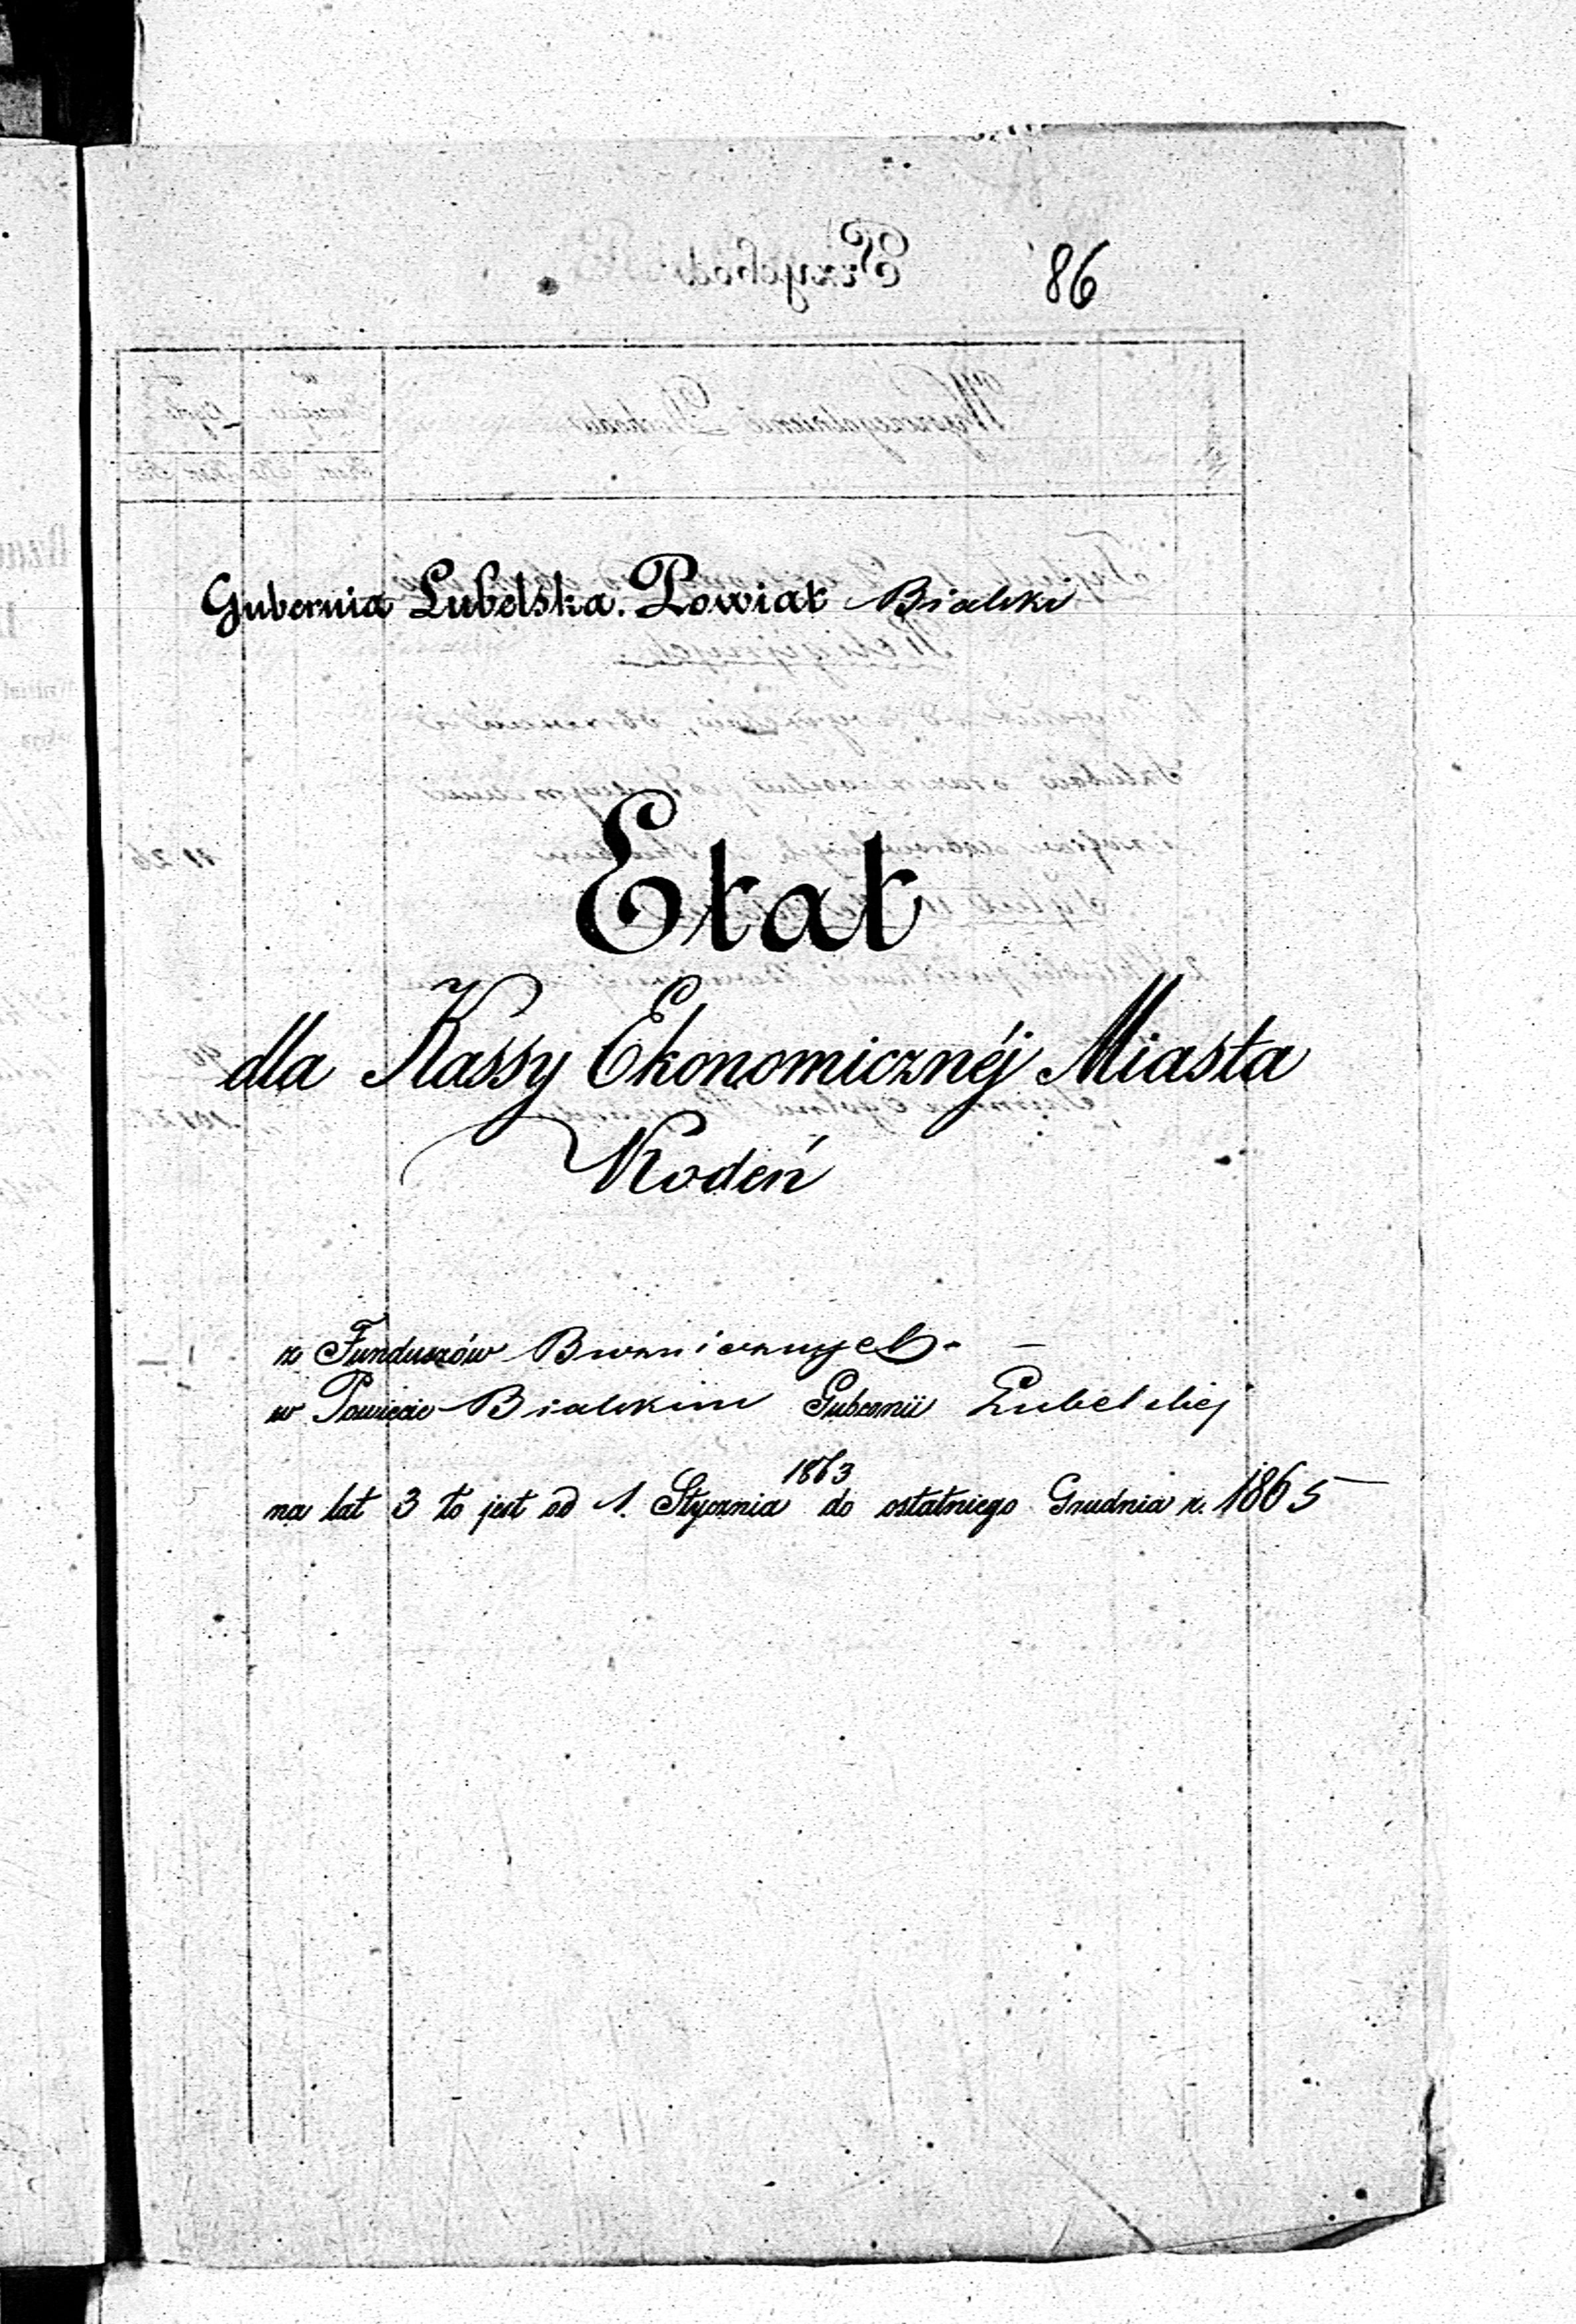 86
Gubernia Lubelska. Powiat Bialski
Etat
dla Kassy Ekonomicznéj Miasta
Kodeń
z Funduszów Bużnicznych
w Powiecie Bialskim Gubernii Lubelskiej
1863
na lat 3 to jest od 1. Stycznia do ostatniego Grudnia r. 1865